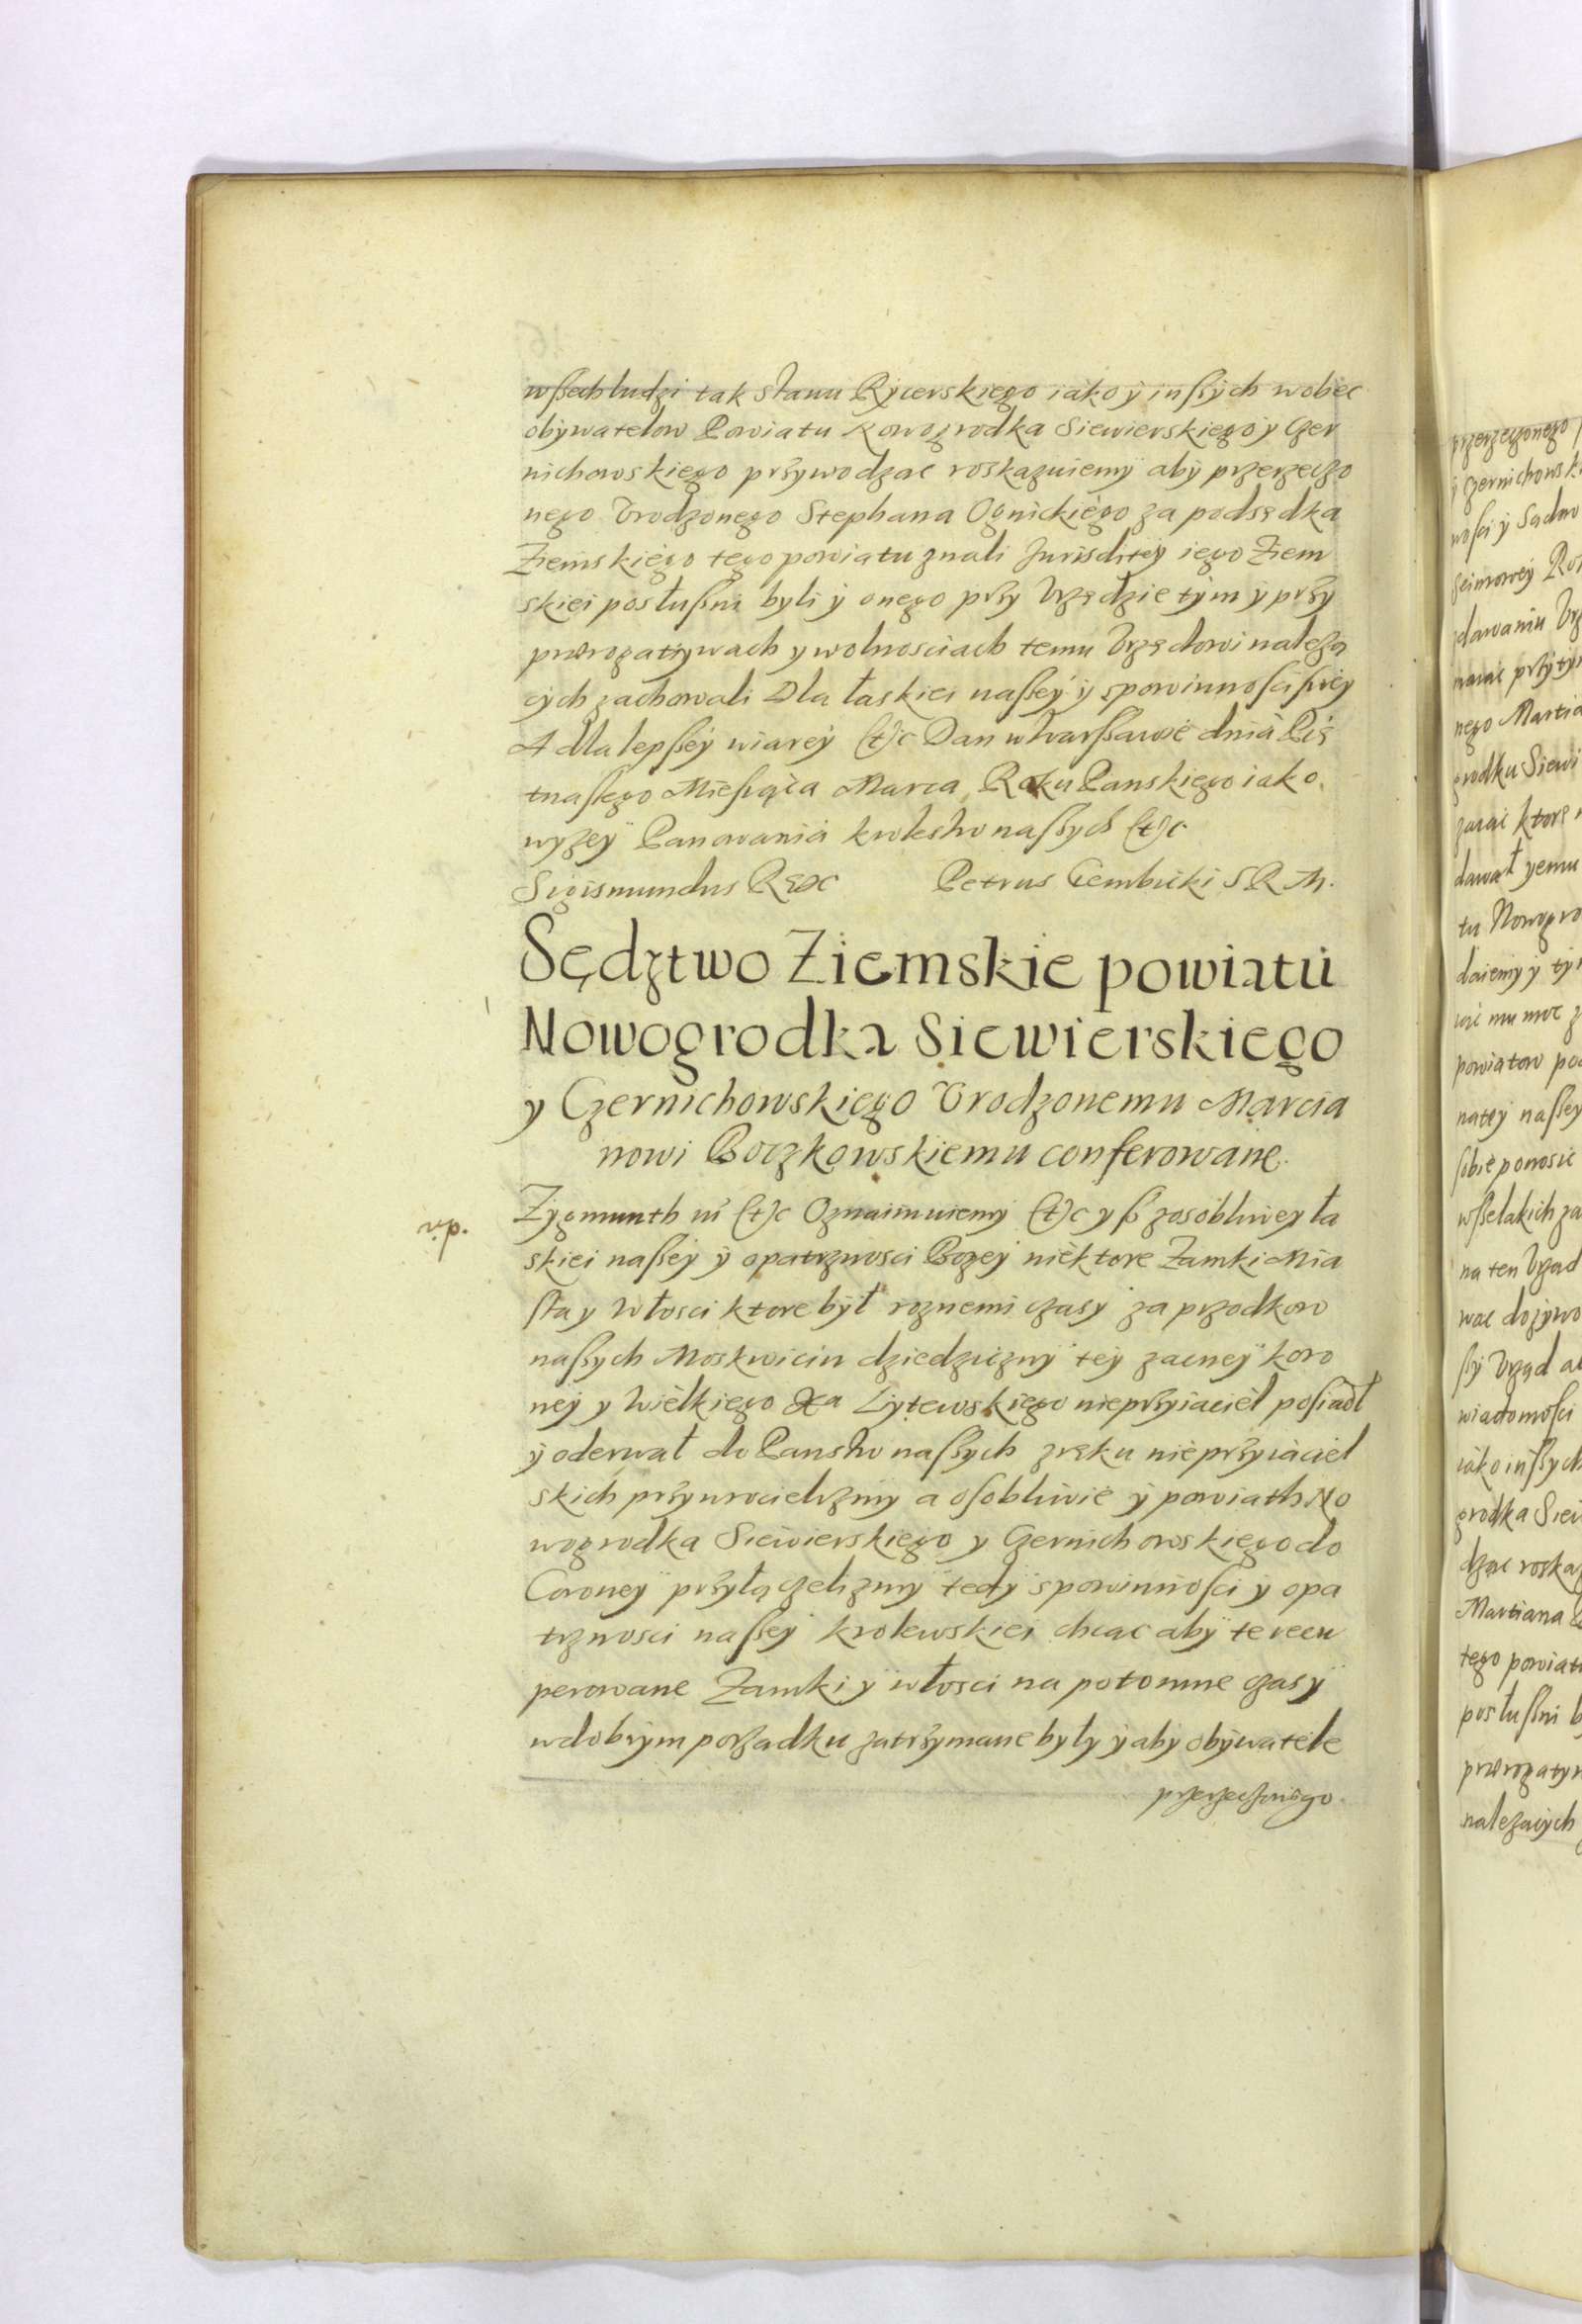 wſſech ludzi tak stanu Rycerskiego iako y inſſych wobec
obywatelow Powiatu Nowogrodka Siewierskiego y Czer
nichowskiego przywodząc roskazuiemy aby przerzeczo
nego Urodzonego Stephana Ognickiego za podsędka
Ziemskiego tego powiatu znali Jurisditiey iego Ziem
skiei posłuſſni byli y onego przy Urzędzie tym y przy
prerogatywach y wolnosciach temu Urzędowi należą
cych zachowali Dla łaskiei naſſey y spowinnosci swey
A dla lepſſey wiarey (t)c Dan w Warſſawie dnia Pię
tnaſtego Miesiąca Marca Roku Panskiego iako
wyżey Panowania krolestw naſſych (t)c
Sigismundus Rex Petrus Gembicki S R M.
Sędztwo Ziemskie powiatu
Nowogrodka Siewierskiego
y Czernichowskiego Urodzonemu Marcia
nowi Boczkowskiemu conferowane
Zygmunth III (t)c Oznaimuiemy (t)c yſz zosobliwey ła
skiei naſſey y opatrznosci Bozey niektore Zamki Mia
sta y Włosci ktore był roznemi czasy za przodkow
naſſych Moskwicin dziedziczny tey zacney koro
ney y Wielkiego Xa Lytewskiego nieprzyiaciel posiadł
y oderwał do Panstw naſſych z ręku nieprzyiaciel
skich przywrocielizmy a osobliwie y powiath No
wogrodka Siewierskiego y Czernichowskiego do
Coroney przyłączelizmy tedy spowinnosci y opa
trznosci naſſey krolewskiei chcac aby te recu
perowane Zamki y włosci na potomne czasy
w dobrym porządku zatrzymane były y aby obywatele
przerzeczonego
przerzeczonego
y Czernichowsk
nosci y Sądow
Seimowey
dawaniu Urz
przy ty
nego Martia
grodku Siewi
ktore
dawał yemu
tu Nowogro
daiemy y ty
powiatow po
naſſey
sobie ponosic
wſſelakich za
na ten Urzad
wac dożywo
Urząd
wiadomosci
iako inſſych
grodka Siew
dzac roskaz
Martiana
tego powiatu
posłuſſni b
prerogatyw
nalezacych